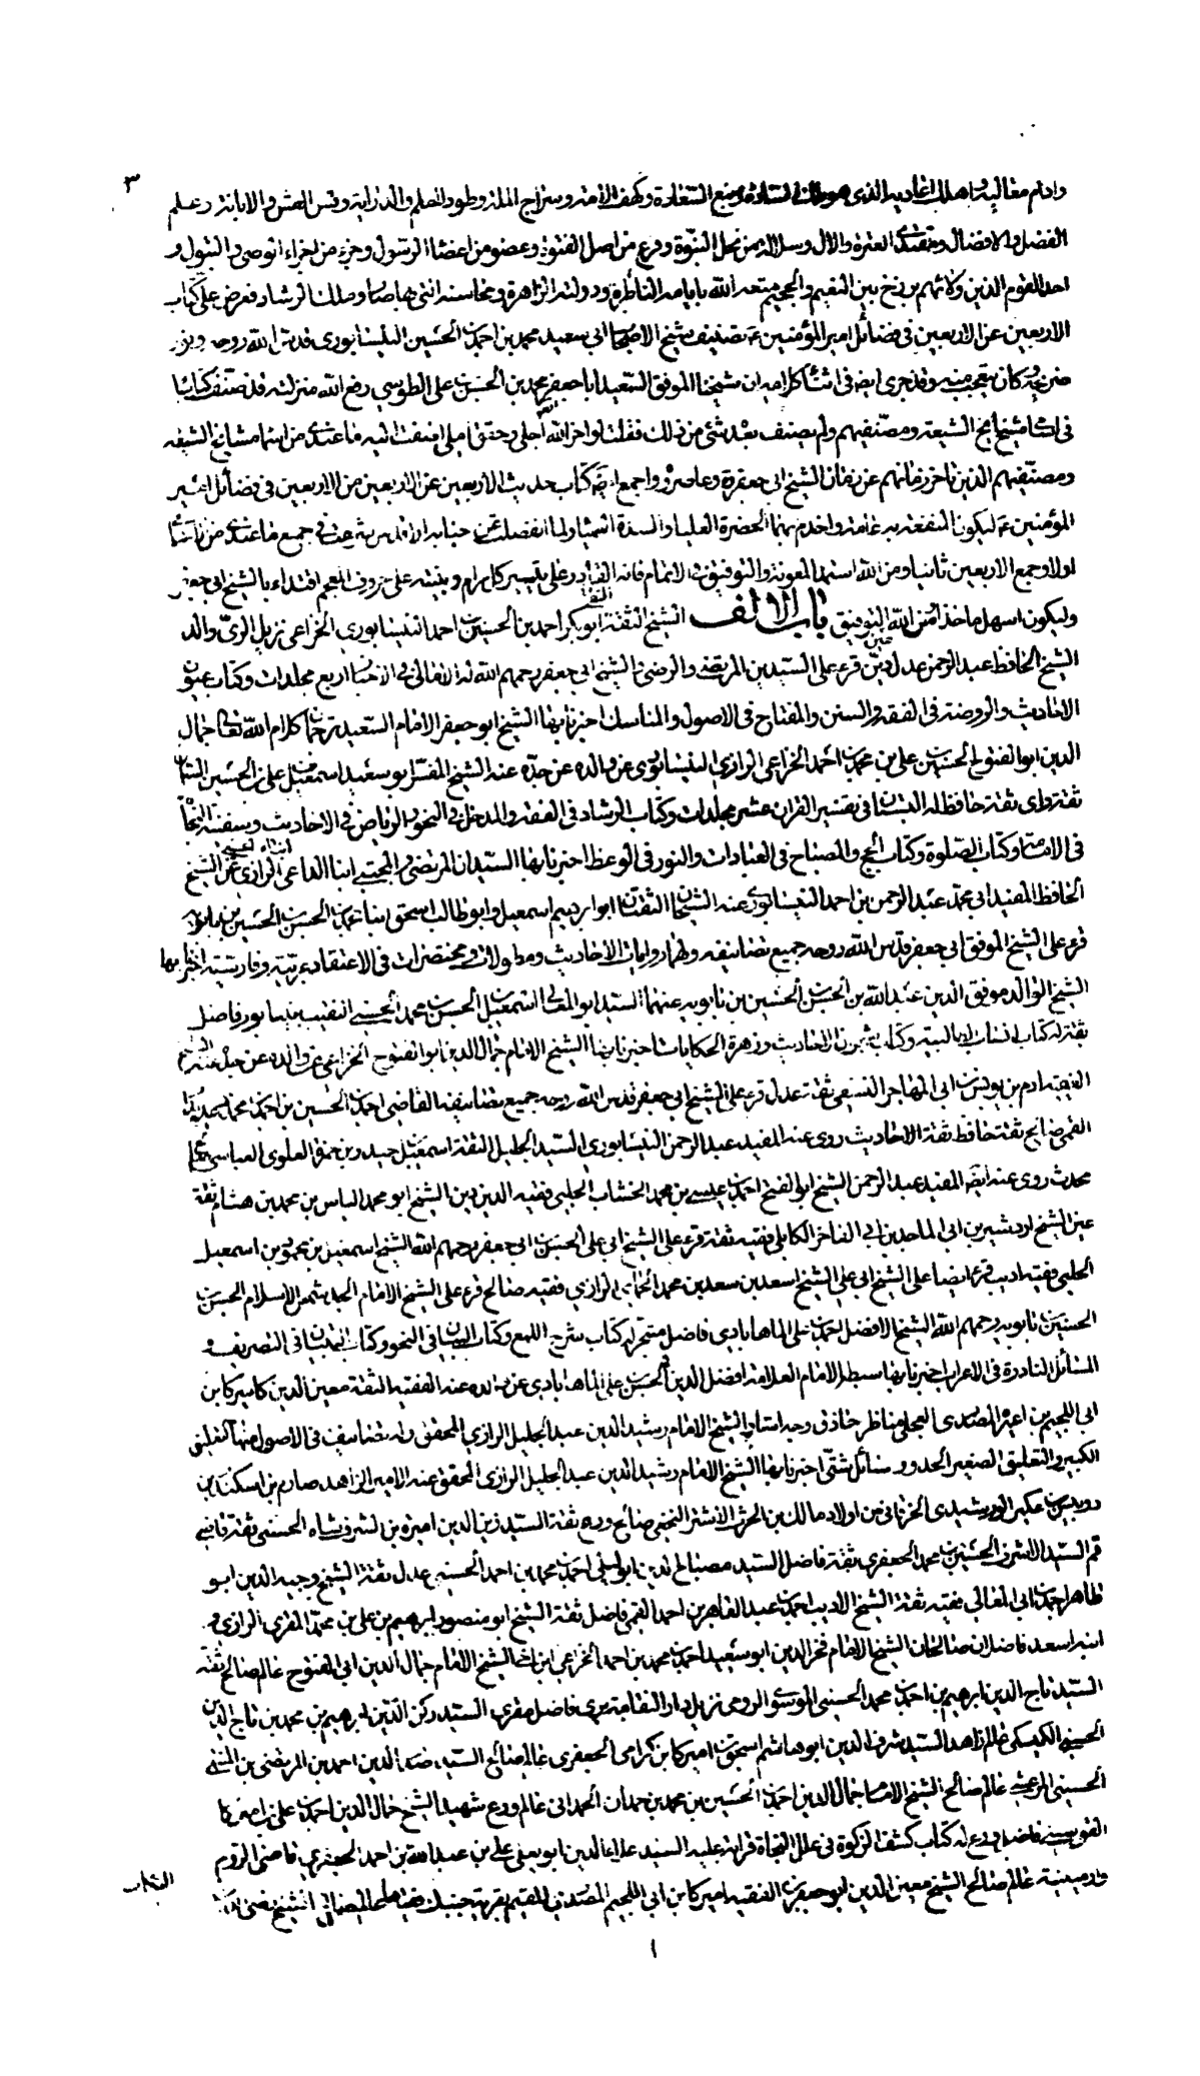 ٣
وادام معاليه واهلك اعاديه الذي هو ملك السادة ومنبع السعادة وكهف الامة وسراج الملة وطود الحلم والدراية وقس العس والابانة وعلم
الفضل والافضال ومقتدى العترة والآل وسلالة من نجل النبوة وفرع من اصل الفتوة وعضو من اعضاء الرسول وجزء من اجزاء الوصي والبتول و
احد القوم الذين ولائهم برزخ بين النعيم والجحيم متعه الله بايامه الناظرة ودولته الزاهرة ومحاسنه التي هاصا وملك الرشاد فعرض على كتاب
الاربعين عن الاربعين في فضائل امير المؤمنين ع تصنيف شيخ الاصحاب ابي سعيد محمد بن احمد بن الحسين النيسابوري قدس الله روحه ونور
ضريحه وكان يتعجب منه وقد جرى ايضا في اثناء كلامه ان شيخنا الموفق السعيد ابا جعفر محمد بن الحسن بن علي الطوسي رفع الله منزلته قد صنف كتابا
في اسامي مشايخ الشيعة ومصنفيهم ولم يصنف بعده شئ من ذلك فقلت لو اخر الله اجلي وحقق املي اضفت اليه ما عندي من اسماء مشايخ الشيعة
ومصنفيهم الذين تاخر زمانهم عن زمان الشيخ ابي جعفر ره وعاصروه واجمع ايضا كتاب حديث الاربعين عن الاربعين من الاربعين في فضائل امير
المؤمنين ع ليكون المنفعة به عامة واخدم بهما الحضرة العليا والسدة الشماء ولما انفصلت عن جنابه الاقدس شرعت في جميع ما عندي من الاسماء
اولا وجمع الاربعين ثانيا ومن الله استمد المعونة والتوفيق في الاتمام فانه القادر على تيسير كل مرام وبنيته على حروف المعجم اقتداء بالشيخ ابي جعفر
وليكون اسهل ماخذا من الله التوفيق باب الالف الشيخ الثقة ابو بكر احمد بن الحسين بن احمد النيسابوري الخزاعي نزيل الري والد
الشيخ الحافظ عبد الرحمن عدل عين دين قرء على السيدين المرتضى والرضى والشيخ ابي جعفر رحمهم الله له الامالي في الاخبار اربع مجلدات وكتاب عيون
الاحاديث والروضة في الفقه والسنن والمفتاح في الاصول والمناسك اخبرنا بها الشيخ ابو جعفر الامام السعيد ترجمان كلام الله تعالى جمال
الدين ابو الفتوح الحسين بن علي بن محمد بن احمد الخزاعي الرازي النيسابوري عن والده عن جده عنه الشيخ المفسر ابو سعيد اسمعيل بن علي بن الحسين السمان
ثقة واي ثقة حافظ له البستان في تفسير القران عشر مجلدات وكتاب الرشاد في الفقه والمدخل في النحو والرياض في الاحاديث وسفينة النجاة
في الامامة وكتاب الصلوة وكتاب الحج والمصباح في العبادات والنور في الوعظ اخبرنا بها السيدان المرتضى والمجتبى ابنا الداعي الرازي عن الشيخ
الحافظ المفيد ابي محمد عبد الرحمن بن احمد النيسابوري عنه الشيخان الثقتان ابو ابرهيم اسمعيل وابو طالب اسحق ابنا محمد بن الحسن بن الحسين بن بابويه
قرء على الشيخ الموفق ابي جعفر قدس الله روحه جميع تصانيفه ولهما روايات الاحاديث ومطولات ومختصرات في الاعتقاد عربية وفارسية اخبرنا بها
الشيخ الوالد موفق الدين عبيد الله بن الحسن بن الحسين بن بابويه عنهما السيد ابو المعالي اسمعيل بن الحسن بن محمد الحسيني النقيب بنيسابور فاضل
ثقة له كتاب انساب الطالبية وكتاب شجون الاحاديث وزهرة الحكايات اخبرنا بها الشيخ الامام جمال الدين ابو الفتوح الخزاعي عن والده عن جده عنه الشيخ
الفقيه ادم بن يونس بن ابي المهاجر النسفي ثقة عدل قرء على الشيخ ابي جعفر قدس الله روحه جميع تصانيفه القاضي احمد بن الحسين بن احمد بن محمد
القمي صالح ثقة حافظ ثقة الاحاديث روى عنه المفيد عبد الرحمن النيسابوري السيد الجليل الثقة اسمعيل بن حيدر بن حمزة العلوي العباسي
محدث روى عنه ايضا المفيد عبد الرحمن الشيخ ابو الفتح احمد بن عيسى بن محمد الخشاب الحلبي فقيه الدين دين الشيخ ابو محمد الياس بن محمد بن هشام ثقة
عين الشيخ اردشير بن ابي الماجدين ابي المفاخر الكابلي فقيه ثقة قرء على الشيخ ابي علي الحسن بن ابي جعفر رحمهم الله الشيخ اسمعيل بن محمود بن اسمعيل
الحلبي فقيه اديب قرء ايضا على الشيخ ابي علي الشيخ اسعد بن سعد بن محمد الحمامي الرازي فقيه صالح قرء على الشيخ الامام الجد شمس الاسلام الحسن بن
الحسين بن بابويه رحمهم الله الشيخ الافضل احمد بن علي الماهابادي فاضل متبحر له كتاب شرح اللمع وكتاب البيان في النحو وكتاب التبيان في التصريف و
المسائل النادرة في الاعراب اخبرنا بها سبطه الامام العلامة افضل الدين الحسن بن علي الماهابادي عن والده عنه الفقيه الثقة معين الدين كاميركا بن
ابي اللجيم بن اميره المصدري العجلي مناظر حاذق وجه استاد الشيخ الامام رشيد الدين عبد الجليل الرازي المحقق وله تصانيف في الاصول منها التعليق
الكبير والتعليق الصغير الحدود ومسائل شتى اخبرنا بها الشيخ الامام رشيد الدين عبد الجليل الرازي المحقق عنه الامير الزاهد صارم بن اسكندر بن
دربيس بن عكبر الورشيدي الخرقاني من اولاد مالك بن الحرث الاشتر النخعي صالح ورع ثقة السيد زين الدين اميرة بن شرفشاه الحسني ثقة قاضي
قم السيد الاشرف بن الحسين بن محمد الجعفري ثقة فاضل السيد مصباح الدين ابو ليلى احمد بن محمد بن احمد الحسيني عدل ثقة الشيخ وجيه الدين ابو
طاهر احمد بن ابي المعالي فقيه ثقة الشيخ الاديب احمد بن عبد القاهر بن احمد القمي فاضل ثقة الشيخ ابو منصور ابرهيم بن علي بن محمد المقري الرازي و
ابنه اسعد فاضلان صالحان الشيخ الامام فخر الدين ابو سعيد احمد بن محمد بن احمد الخزاعي ابن اخ الشيخ الامام جمال الدين ابي الفتوح عالم صالح ثقة
السيد تاج الدين ابرهيم بن احمد بن محمد الحسيني الموسوي الرومي نزيل دار النقابة بري فاضل مقري السيد ركن الدين ابرهيم بن محمد بن تاج الدين
الحسني الكيسكي عالم زاهد السيد شرف الدين ابو هاشم اسحق بن اميركا بن كرامي الجعفري عالم صالح السيد ضياء الدين احمد بن المرتضى بن المنتهى
الحسيني المرعشي عالم صالح الشيخ الامام جمال الدين احمد بن الحسين بن محمد بن حمدان الحمداني عالم ورع شهيد الشيخ جمال الدين احمد بن علي بن اميركا
القوسيني فاضل ورع له كتاب كشف الزكوة في علل النجاة قراته عليه السيد علاء الدين ابو يعلى علي بن عبد الله بن احمد الجعفري قاضي الروم
وارمينية عالم صالح الشيخ معين الدين ابو جعفر بن الفقيه اميركا بن ابي اللجيم المصدري المقيم بقرية جنبدك فقيه عالم صالح الشيخ
١